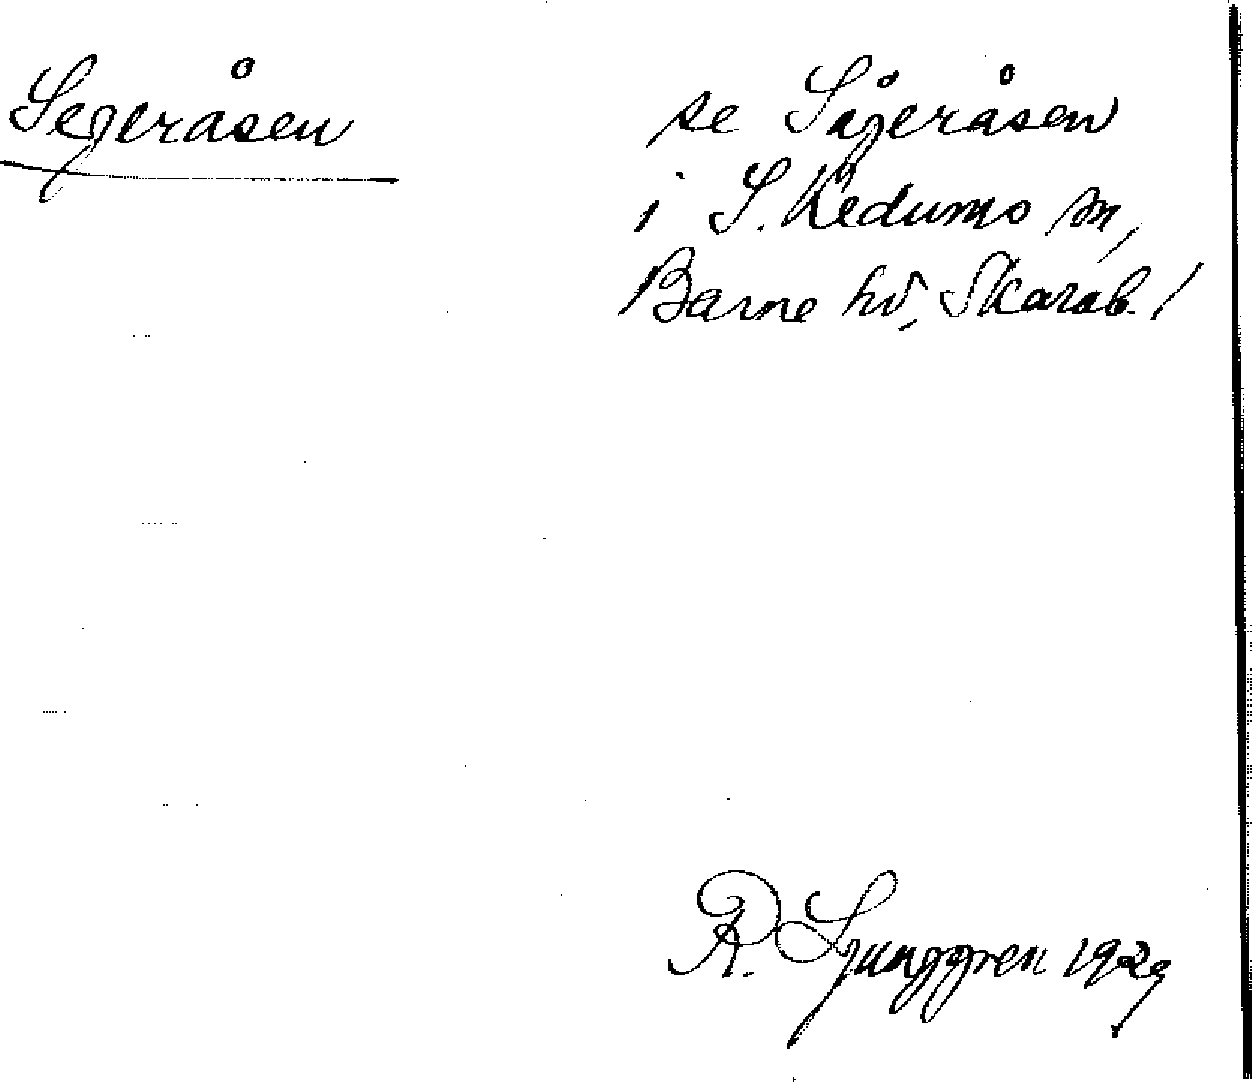 Segeråsen
se Sågeråsen
i S. Kedums sn,
Barne hd, Skarab. !
R. Ljunggren 1929